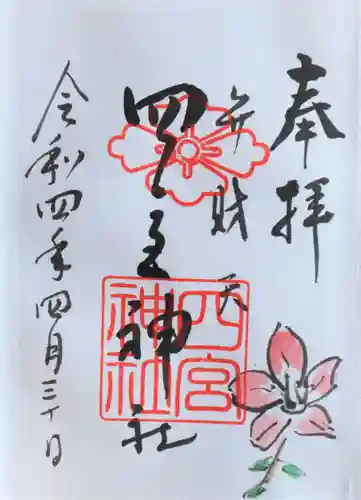 奉拝
弁財天
四之宮神社
四宮神社
令和四年四月三十日